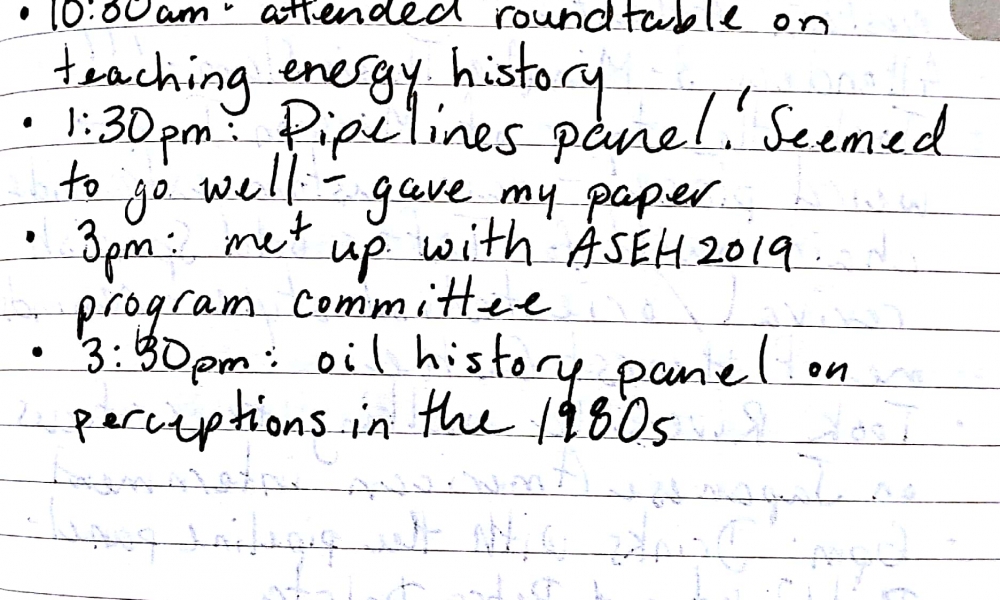 • 10:30am: attended roundtable on
teaching energy history
• 1:30pm: Pipelines panel! Seemed
to go well - gave my paper
• 3pm: met up with ASEH 2019
program committee
• 3:30pm: oil history panel on
perceptions in the 1980s